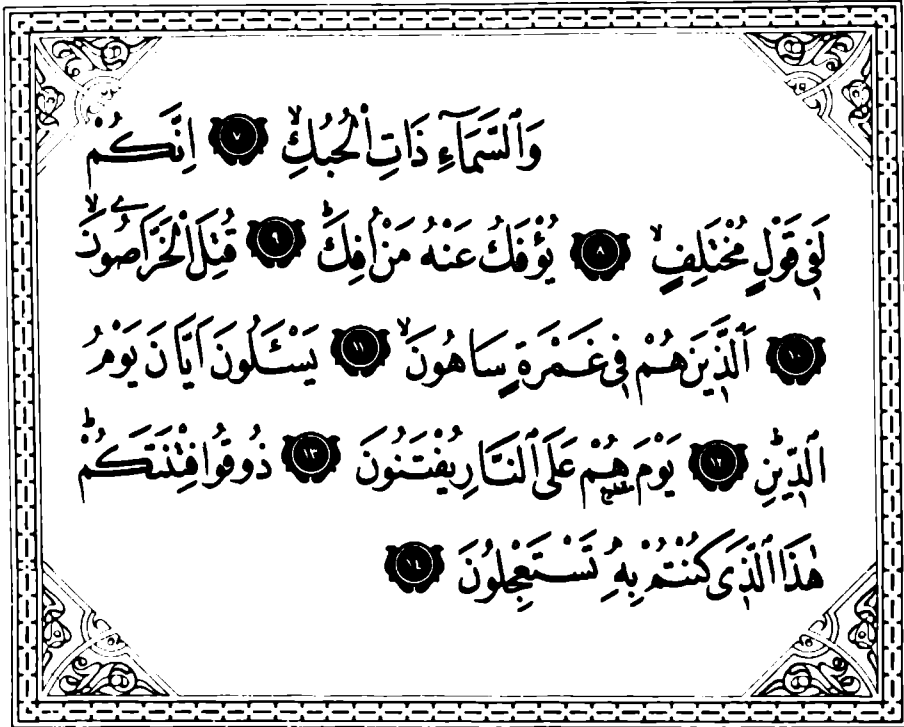 وَٱلسَّمَآءِ ذَاتِ ٱلْحُبُكِۙ ٧ اِنَّكُمْ
لَفٖى قَوْلٍ مُخْتَلِفٍۙ ٨ يُؤْفَكُ عَنْهُ مَنْ اُفِكَۜ ٩ قُتِلَ الْخَرَّاصُونَۙ
١٠ اَلَّذٖينَ هُمْ فٖى غَمْرَةٍ سَاهُونَۙ ١١ يَسْـَٔلُونَ اَيَّانَ يَوْمُ
ٱلدّٖينِۜ ١٢ يَوْمَ هُمْ عَلَى ٱلنَّارِ يُفْتَنُونَ ١٣ ذُوقُوا فِتْنَتَكُمْۜ
هٰذَا ٱلَّذٖى كُنْتُمْ بِهٖ تَسْتَعْجِلُونَ ١٤